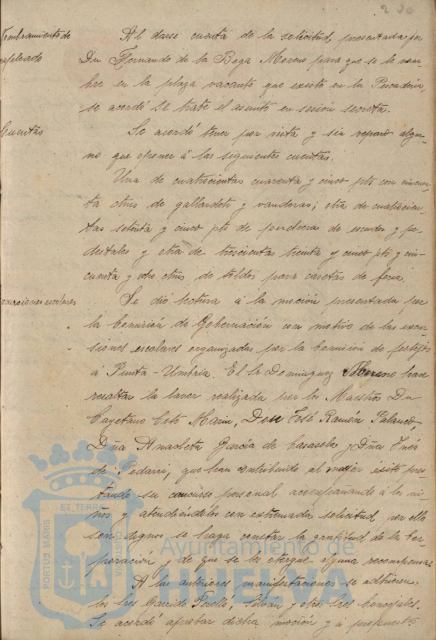 230
Nombramiento de
empleado
Al darse cuenta de la solicitud presentada por
Dn Fernando de la Vega Moreno para que se le nom-
bre en la plaza vacante que existe en la
se acordó se trate el asunto en sesión secreta.
Cuentas
Se acordó tener por vista y sin reparo algu-
no que oponer á las siguientes cuentas.
Una de cuatrocientas cuarenta y cinco pts con cincuen-
ta ctms de gallardets y vanderas; otra de cuatrocien-
tas setenta y cinco pts de de escudos y pe-
destales y otra de trescientas treinta y cinco pts y cin-
cuenta y ocho ctms de toldos para casetas de feria.
Excursiones escolares
Se dio lectura á la moción presentada por
la Comisión de Gobernación con motivo de las excur-
siones escolares organizadas por la Comisión de festejos
á Punta-Umbria. El Sr Dominguez Moreno hace
resaltar la labor realizada por los Maestros Dn
Cayetano Marin, Don José Ramón
Dña Anacleta García de y Dña Inés
de que han contribuido al mejor éxito pres-
tando su concurso personal acompañando á los ni-
ños y atendiéndolos con extremada solicitud, por ello
son dignos se haga constar la gratitud de la Cor-
poración y de que se le otorgue alguna recompensa
A las anteriores manifestaciones se adhieren
los Sres Garrido y otros Sres Concejales.
Se acordó aprobar dicha moción y á propuesta
PORTUS MARIS
ET TERRAE
CUSTODIA
Ayuntamiento de
HUELVA